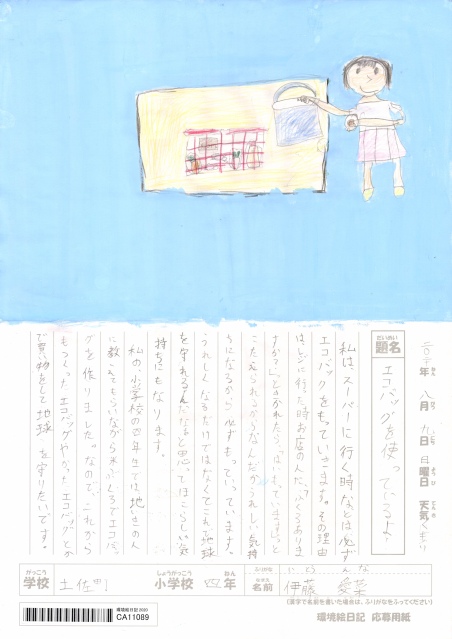 だいめい
題名
エコバッグを使っているよ
二〇二〇年 八月 九日 日曜日 天気 くもり
私は、スーパーに行く時などは必ず
エコバッグをもっていきます。その理由
は、レジに行った時お店の人に「ふくろあり
ますか?」ときかれたら「はい、もってます。」と
こたえられるからなんだかうれしい気持
ちになるから必ずもっていっています。
うれしくなるだけではなくてこれで地球
を守れるんだなぁと思ってほこらしい気
持ちにもなります。
私の小学校の四年生では地いきの人
に教えてもらいながら米ぶくろでエコバッ
グを作りました。なので、これから
もつくったエコバッグやかったエコバッグとか
で買い物をして地球を守りたいです。
がっこう しょうがっこう ねん ふりがな いとう な
学校 土佐町 小学校 四年 名前 伊藤 愛菜
(漢字で名前を書いた場合は、ふりがなをふってください)
環境絵日記2020
CA11089
環境絵日記 応募用紙